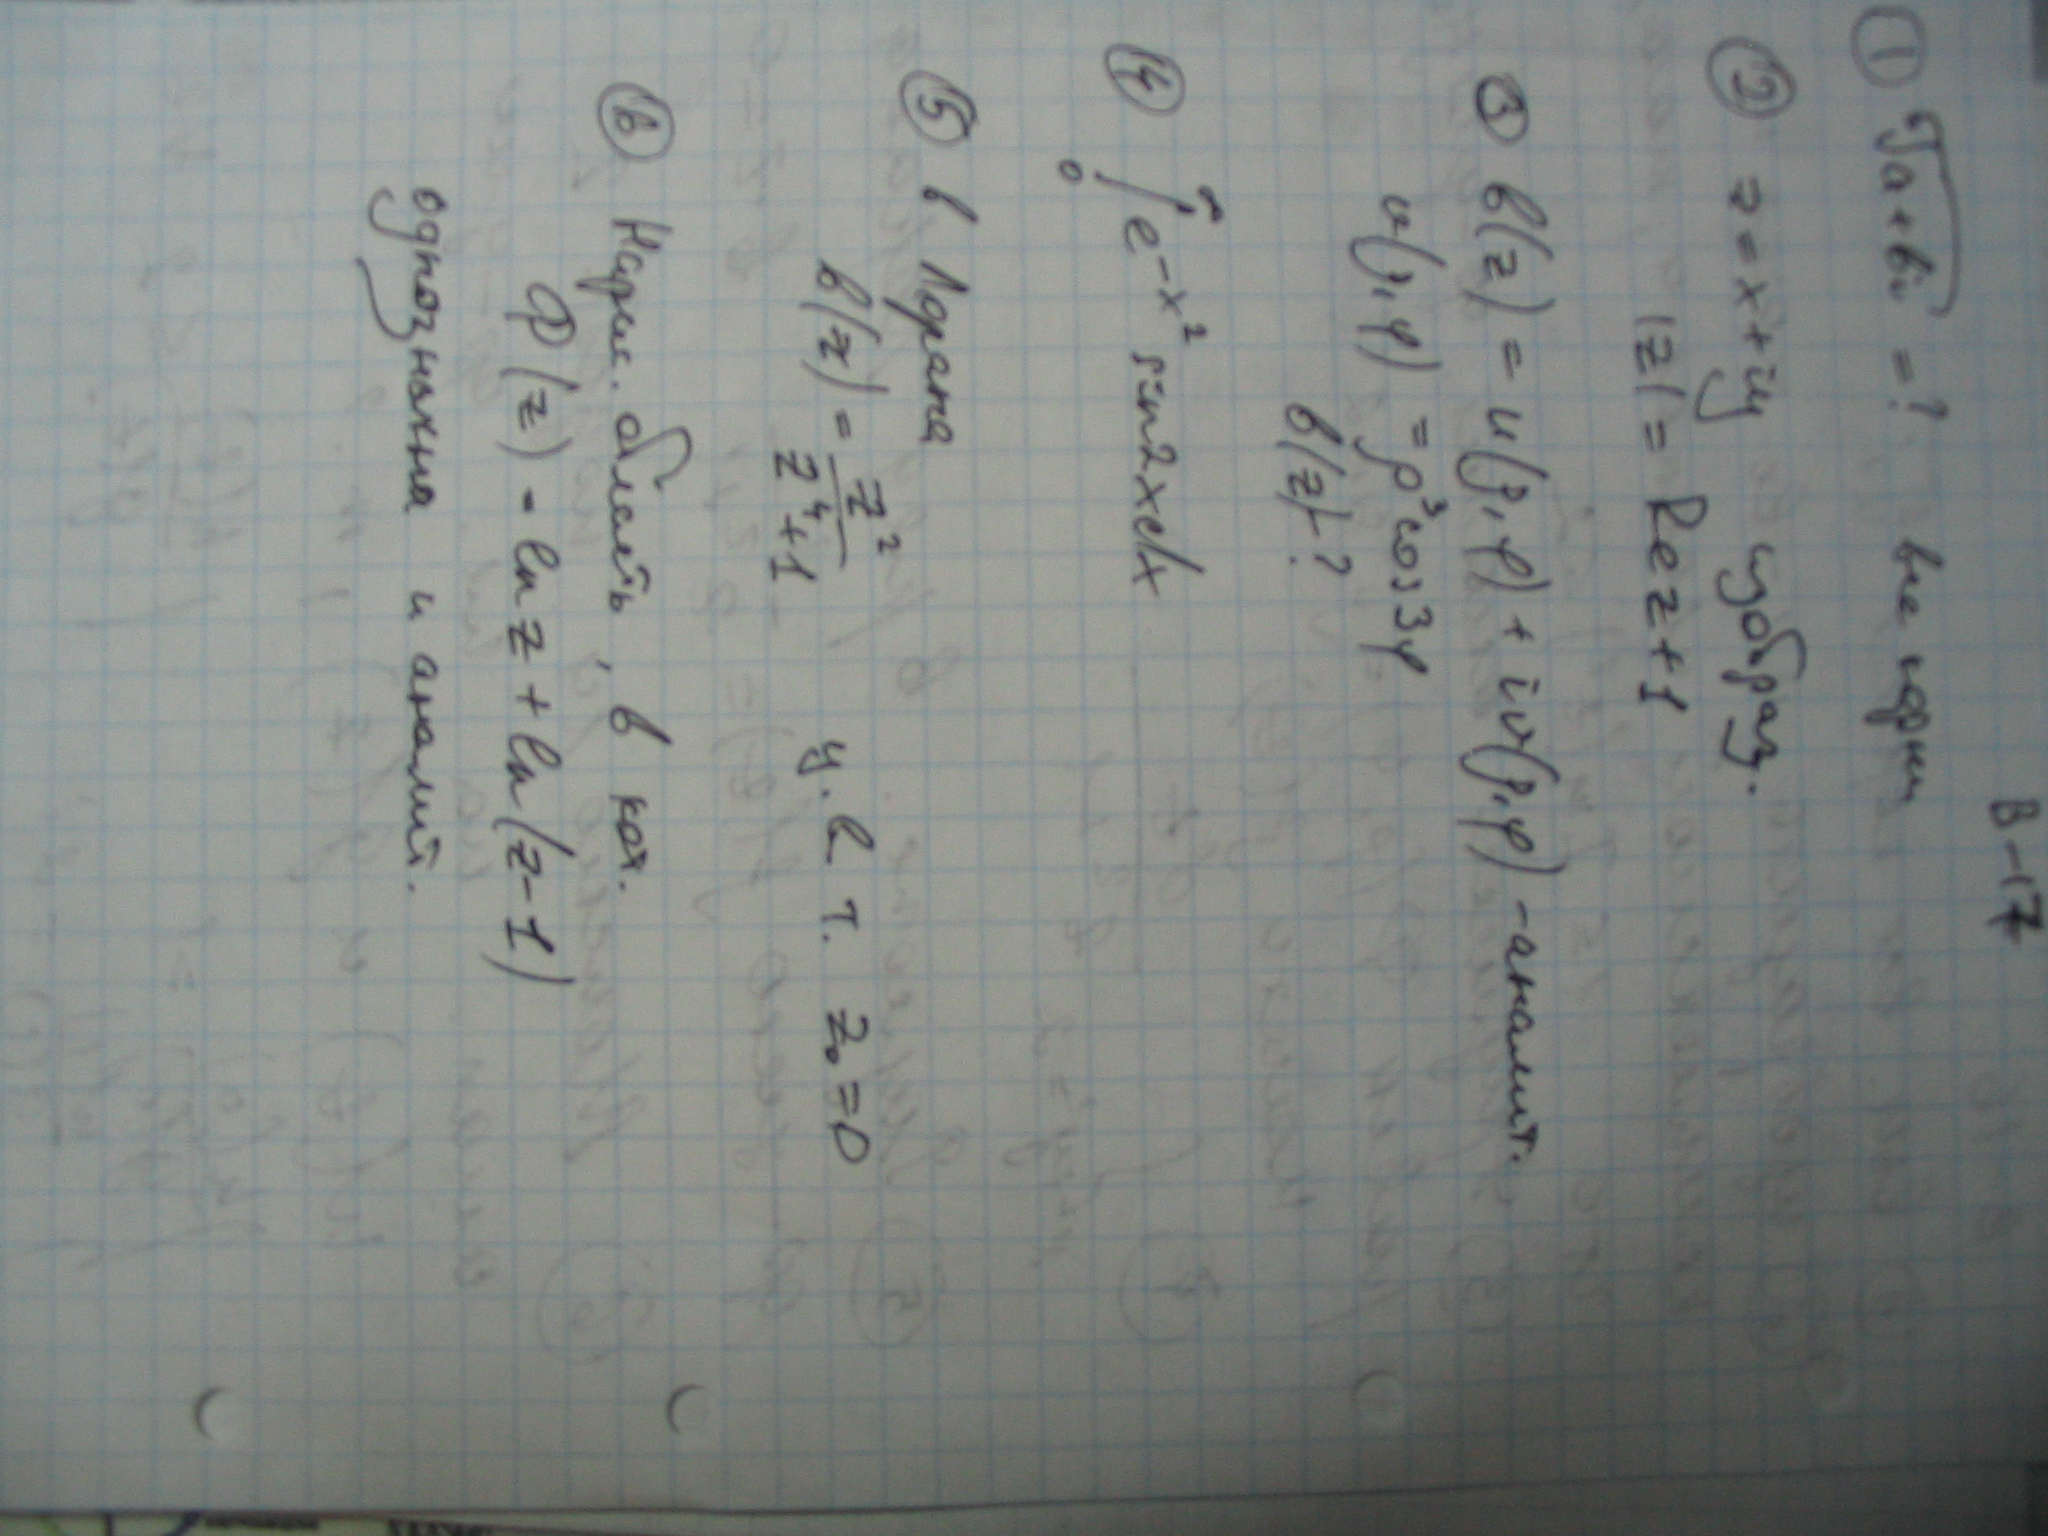 В-17
① √a+bi = ? все корни
② z = x+iy изобраз.
|z| = Re z+1
③ f(z) = u(ρ,φ) + iv(ρ,φ) - аналит.
u(ρ,φ) = ρ³cos3φ
f(z)-?
④ ∫ e^{-x²} sin2xdx
0
⑤ в Лорана
f(z) = z²/(z⁴+1) z₀=0
⑥ область, в кот.
Ф(z) = ln z + ln(z-1)
однозначна и аналит.